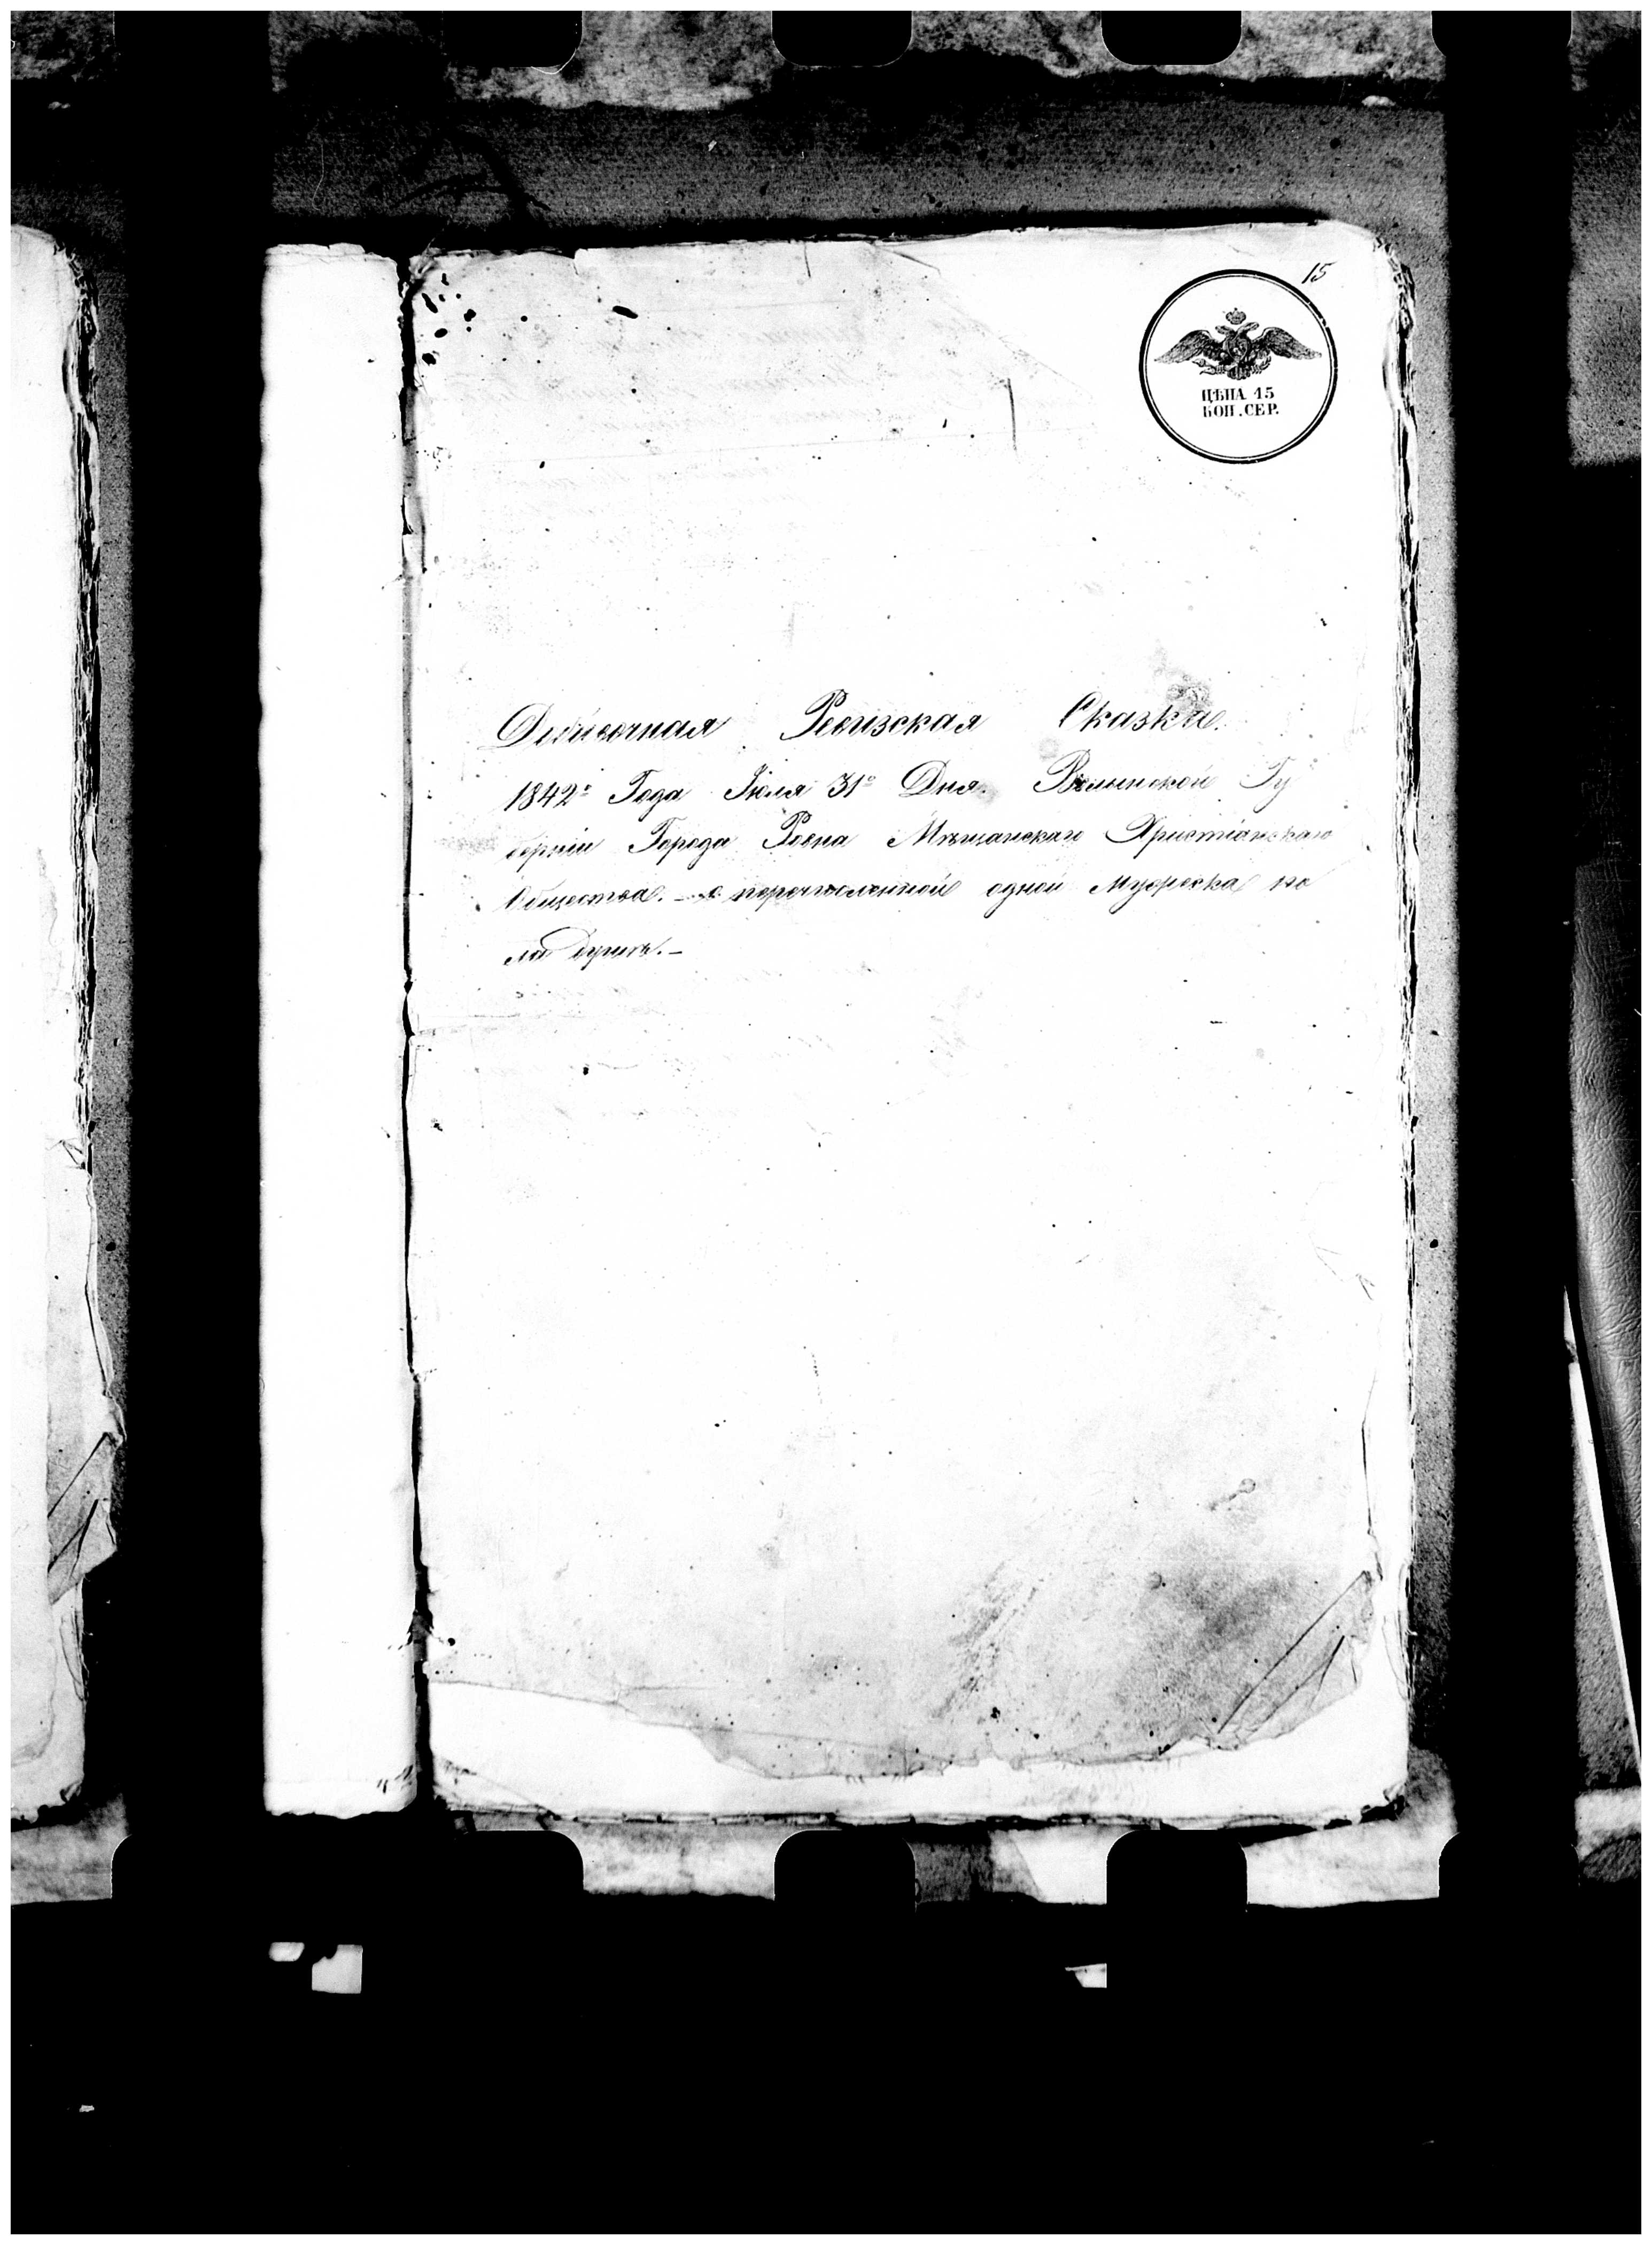 15
ЦѢНА 15
КОП. СЕР.
Ревизская Сказка.
1842го Года Іюля 31го Дня. Волынской Гу
берніи Города Ровна Мѣщанскаго Христіанскаго
Общества. – о перечисленной одной Мужеска по
ла душѣ. –